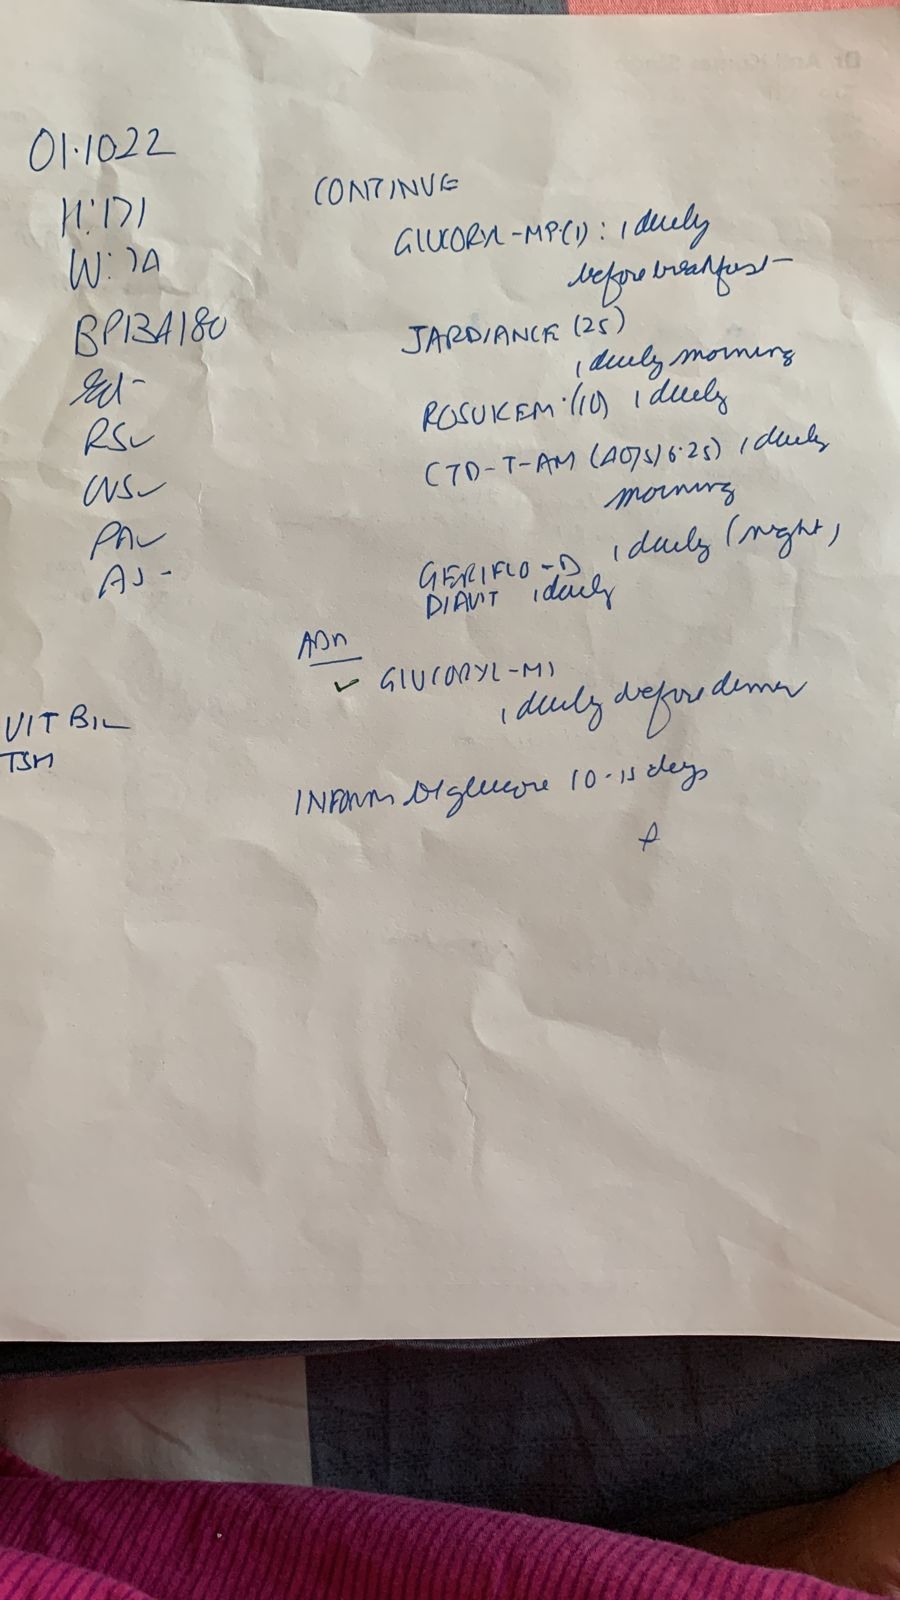 01.1022
H: 171
W: 74
BP134180
RS✓
CNS✓
PA✓
AJ -
VIT B12
TSH
CONTINUE
GLUCORYL-MP(1) : 1 daily
before breakfast
JARDIANCE (25)
1 daily morning
ROSUKEM (10) 1 daily
CTD-T-AM (40/5/6.25) 1 daily
morning
GERIFLO-D 1 daily (night)
DIAVIT 1 daily
ADD
✓ GLUCORYL-M1
1 daily before dinner
INFORM Bl glucose 10-15 days